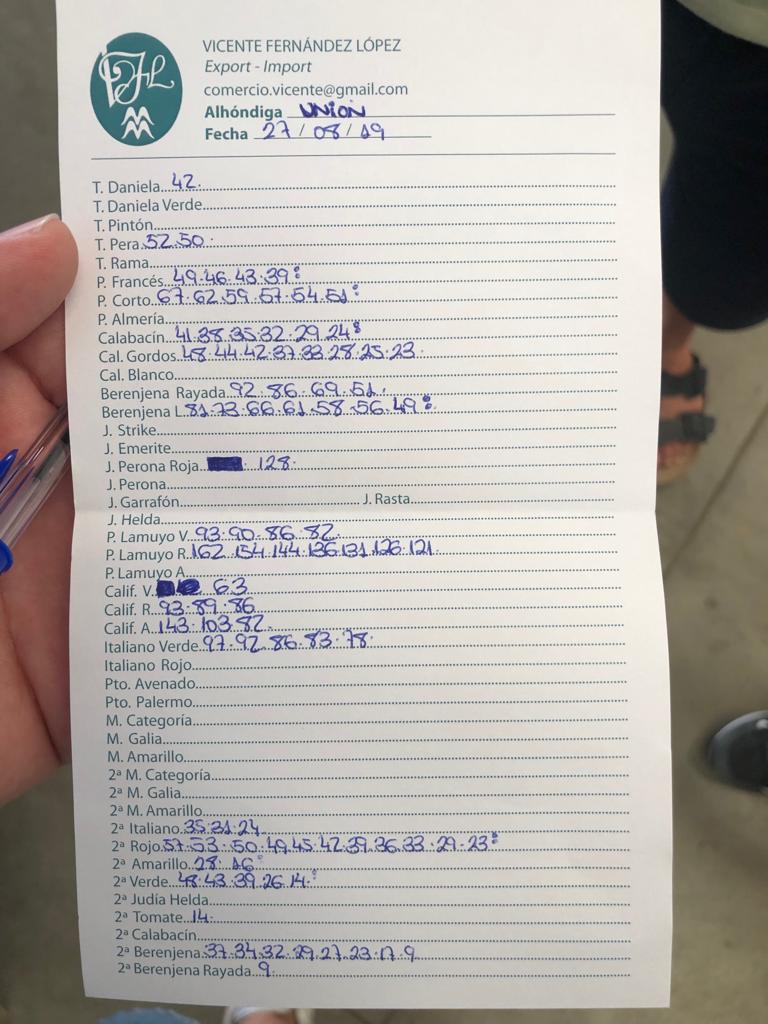 VFL
VICENTE FERNÁNDEZ LÓPEZ
Export - Import
comercio.vicente@gmail.com
Alhóndiga UNION
Fecha 27 / 08 / 19
T. Daniela 42.
T. Daniela Verde
T. Pintón
T. Pera 52.50.
T. Rama
P. Francés 49.46.43.39
P. Corto 67.62.59.57.54.51
P. Almería
Calabacín 41.38.35.32.29.24
Cal. Gordos 48.44.42.37.33.28.25.23.
Cal. Blanco
Berenjena Rayada 92.86.69.51.
Berenjena L. 81.73.66.61.58.56.49
J. Strike
J. Emerite
J. Perona Roja 128.
J. Perona
J. Garrafón J. Rasta
J. Helda
P. Lamuyo V. 93.90.86.82
P. Lamuyo R. 162.154.144.136.131.126.121.
P. Lamuyo A
Calif. V. 63
Calif. R. 93.89.86
Calif. A. 143.103.82
Italiano Verde 97.92.86.83.78.
Italiano Rojo
Pto. Avenado
Pto. Palermo
M. Categoría
M. Galia
M. Amarillo
2ª M. Categoría
2ª M. Galia
2ª M. Amarillo
2ª Italiano 35.31.24
2ª Rojo 57.53.50.49.45.42.39.36.33.29.23
2ª Amarillo 28.16
2ª Verde 48.43.39.26.14
2ª Judía Helda
2ª Tomate 14.
2ª Calabacín
2ª Berenjena 37.34.32.29.27.23.17.9
2ª Berenjena Rayada 9